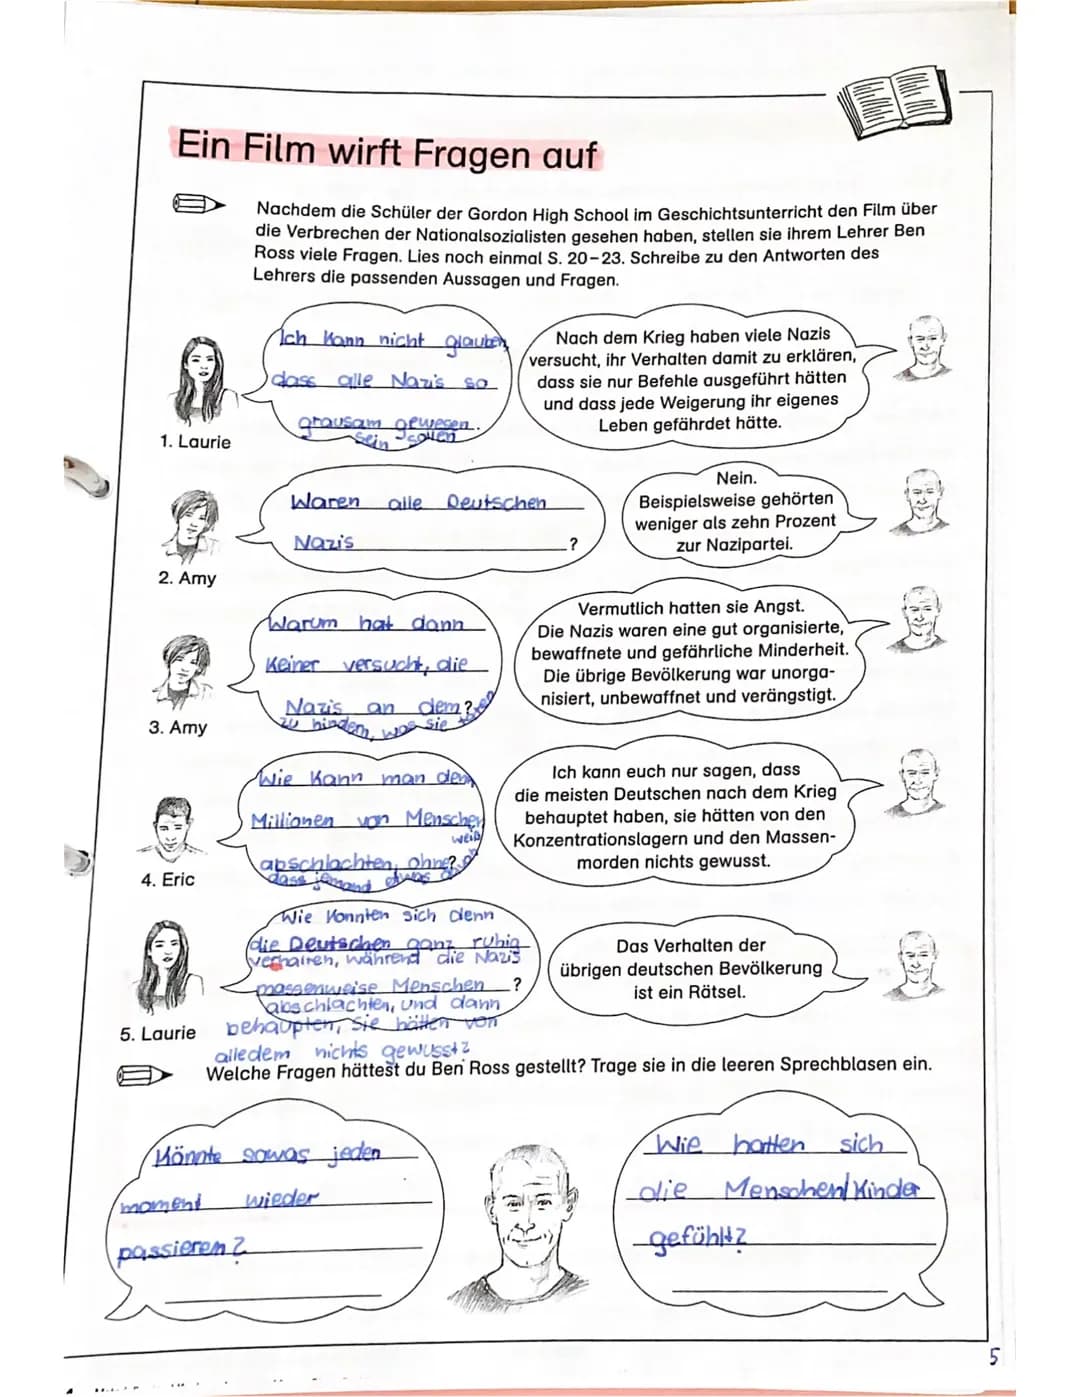 Ein Film wirft Fragen auf
Nachdem die Schüler der Gordon High School im Geschichtsunterricht den Film über
die Verbrechen der Nationalsozialisten gesehen haben, stellen sie ihrem Lehrer Ben
Ross viele Fragen. Lies noch einmal S. 20–23. Schreibe zu den Antworten des
Lehrers die passenden Aussagen und Fragen.
Ich kann nicht glauben,
dass alle Nazis so
grausam gewesen.
sein sollen
1. Laurie
Nach dem Krieg haben viele Nazis
versucht, ihr Verhalten damit zu erklären,
dass sie nur Befehle ausgeführt hätten
und dass jede Weigerung ihr eigenes
Leben gefährdet hätte.
Waren alle Deutschen
Nazis ?
2. Amy
Nein.
Beispielsweise gehörten
weniger als zehn Prozent
zur Nazipartei.
Warum hat dann
keiner versucht, die
Nazis an dem?
zu hindern, was sie
3. Amy
Vermutlich hatten sie Angst.
Die Nazis waren eine gut organisierte,
bewaffnete und gefährliche Minderheit.
Die übrige Bevölkerung war unorga-
nisiert, unbewaffnet und verängstigt.
Wie kann man denn
Millionen von Menschen
abschlachten, ohne?
dass jemand etwas
weiß
4. Eric
Ich kann euch nur sagen, dass
die meisten Deutschen nach dem Krieg
behauptet haben, sie hätten von den
Konzentrationslagern und den Massen-
morden nichts gewusst.
Wie konnten sich denn
die Deutschen ganz ruhig
verhalten, während die Nazis
massenweise Menschen ?
abschlachten, und dann
behaupten, sie hätten von
alledem nichts gewusst?
5. Laurie
Das Verhalten der
übrigen deutschen Bevölkerung
ist ein Rätsel.
Welche Fragen hättest du Ben Ross gestellt? Trage sie in die leeren Sprechblasen ein.
Könnte sowas jeden
moment wieder
passieren?
Wie hatten sich
die Menschen/Kinder
gefühlt?
5